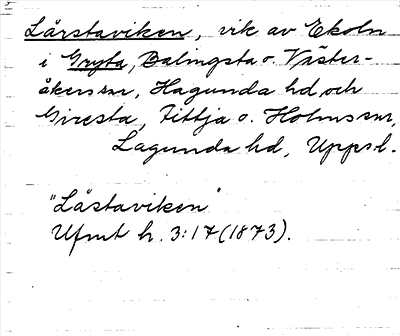 Lårstaviken, vik av Ekoln
i Gryta, Balingsta o. Väster-
åkers snr, Hagunda hd och
Giresta, Fittja o. Holms snr,
Lagunda hd, Uppsl.
"Låstaviken"
Ufmt h. 3:17 (1873).